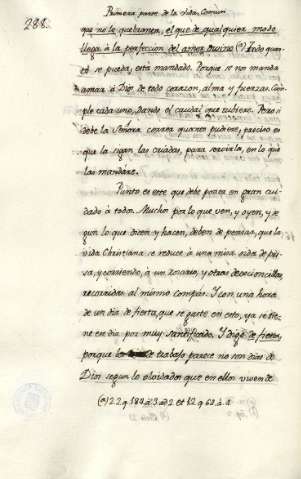 Primera parte de la vida Comun
288.
que no le quebranten, el que de qualquier modo
llega à la perfeccion del amor Divino (*). Todo quan-
to se pueda, esta mandado. Porque si no manda
amar à Dios de todo corazon, alma y fuerzas. Cum-
ple cada uno, dando el caudal que tubiere. Pero si
debe la Señora correr quanto pudiere, preciso es
que la sigan las criadas, para servirla, en lo que
las mandare.
Punto es este que debe poner en gran cui-
dado à todos. Muchos por lo que ven, y oyen, y se-
gun lo que dicen y hacen, deben de pensar, que la
vida Christiana se reduce à una misa oida de pri-
sa, y corriendo, à un rosario, y otras devocioncillas,
recorridas al mismo compàs. Y con una hora
de un dia de fiesta, que se gaste en esto, ya se tie-
ne en dia por muy santificado. Y digo de fiesta,
porque los de trabajo parece no son dias de
Dios segun lo olvidados que en ellos viven de
(*) 2 2 q 184 a 3 ad 2 et 1 2 q